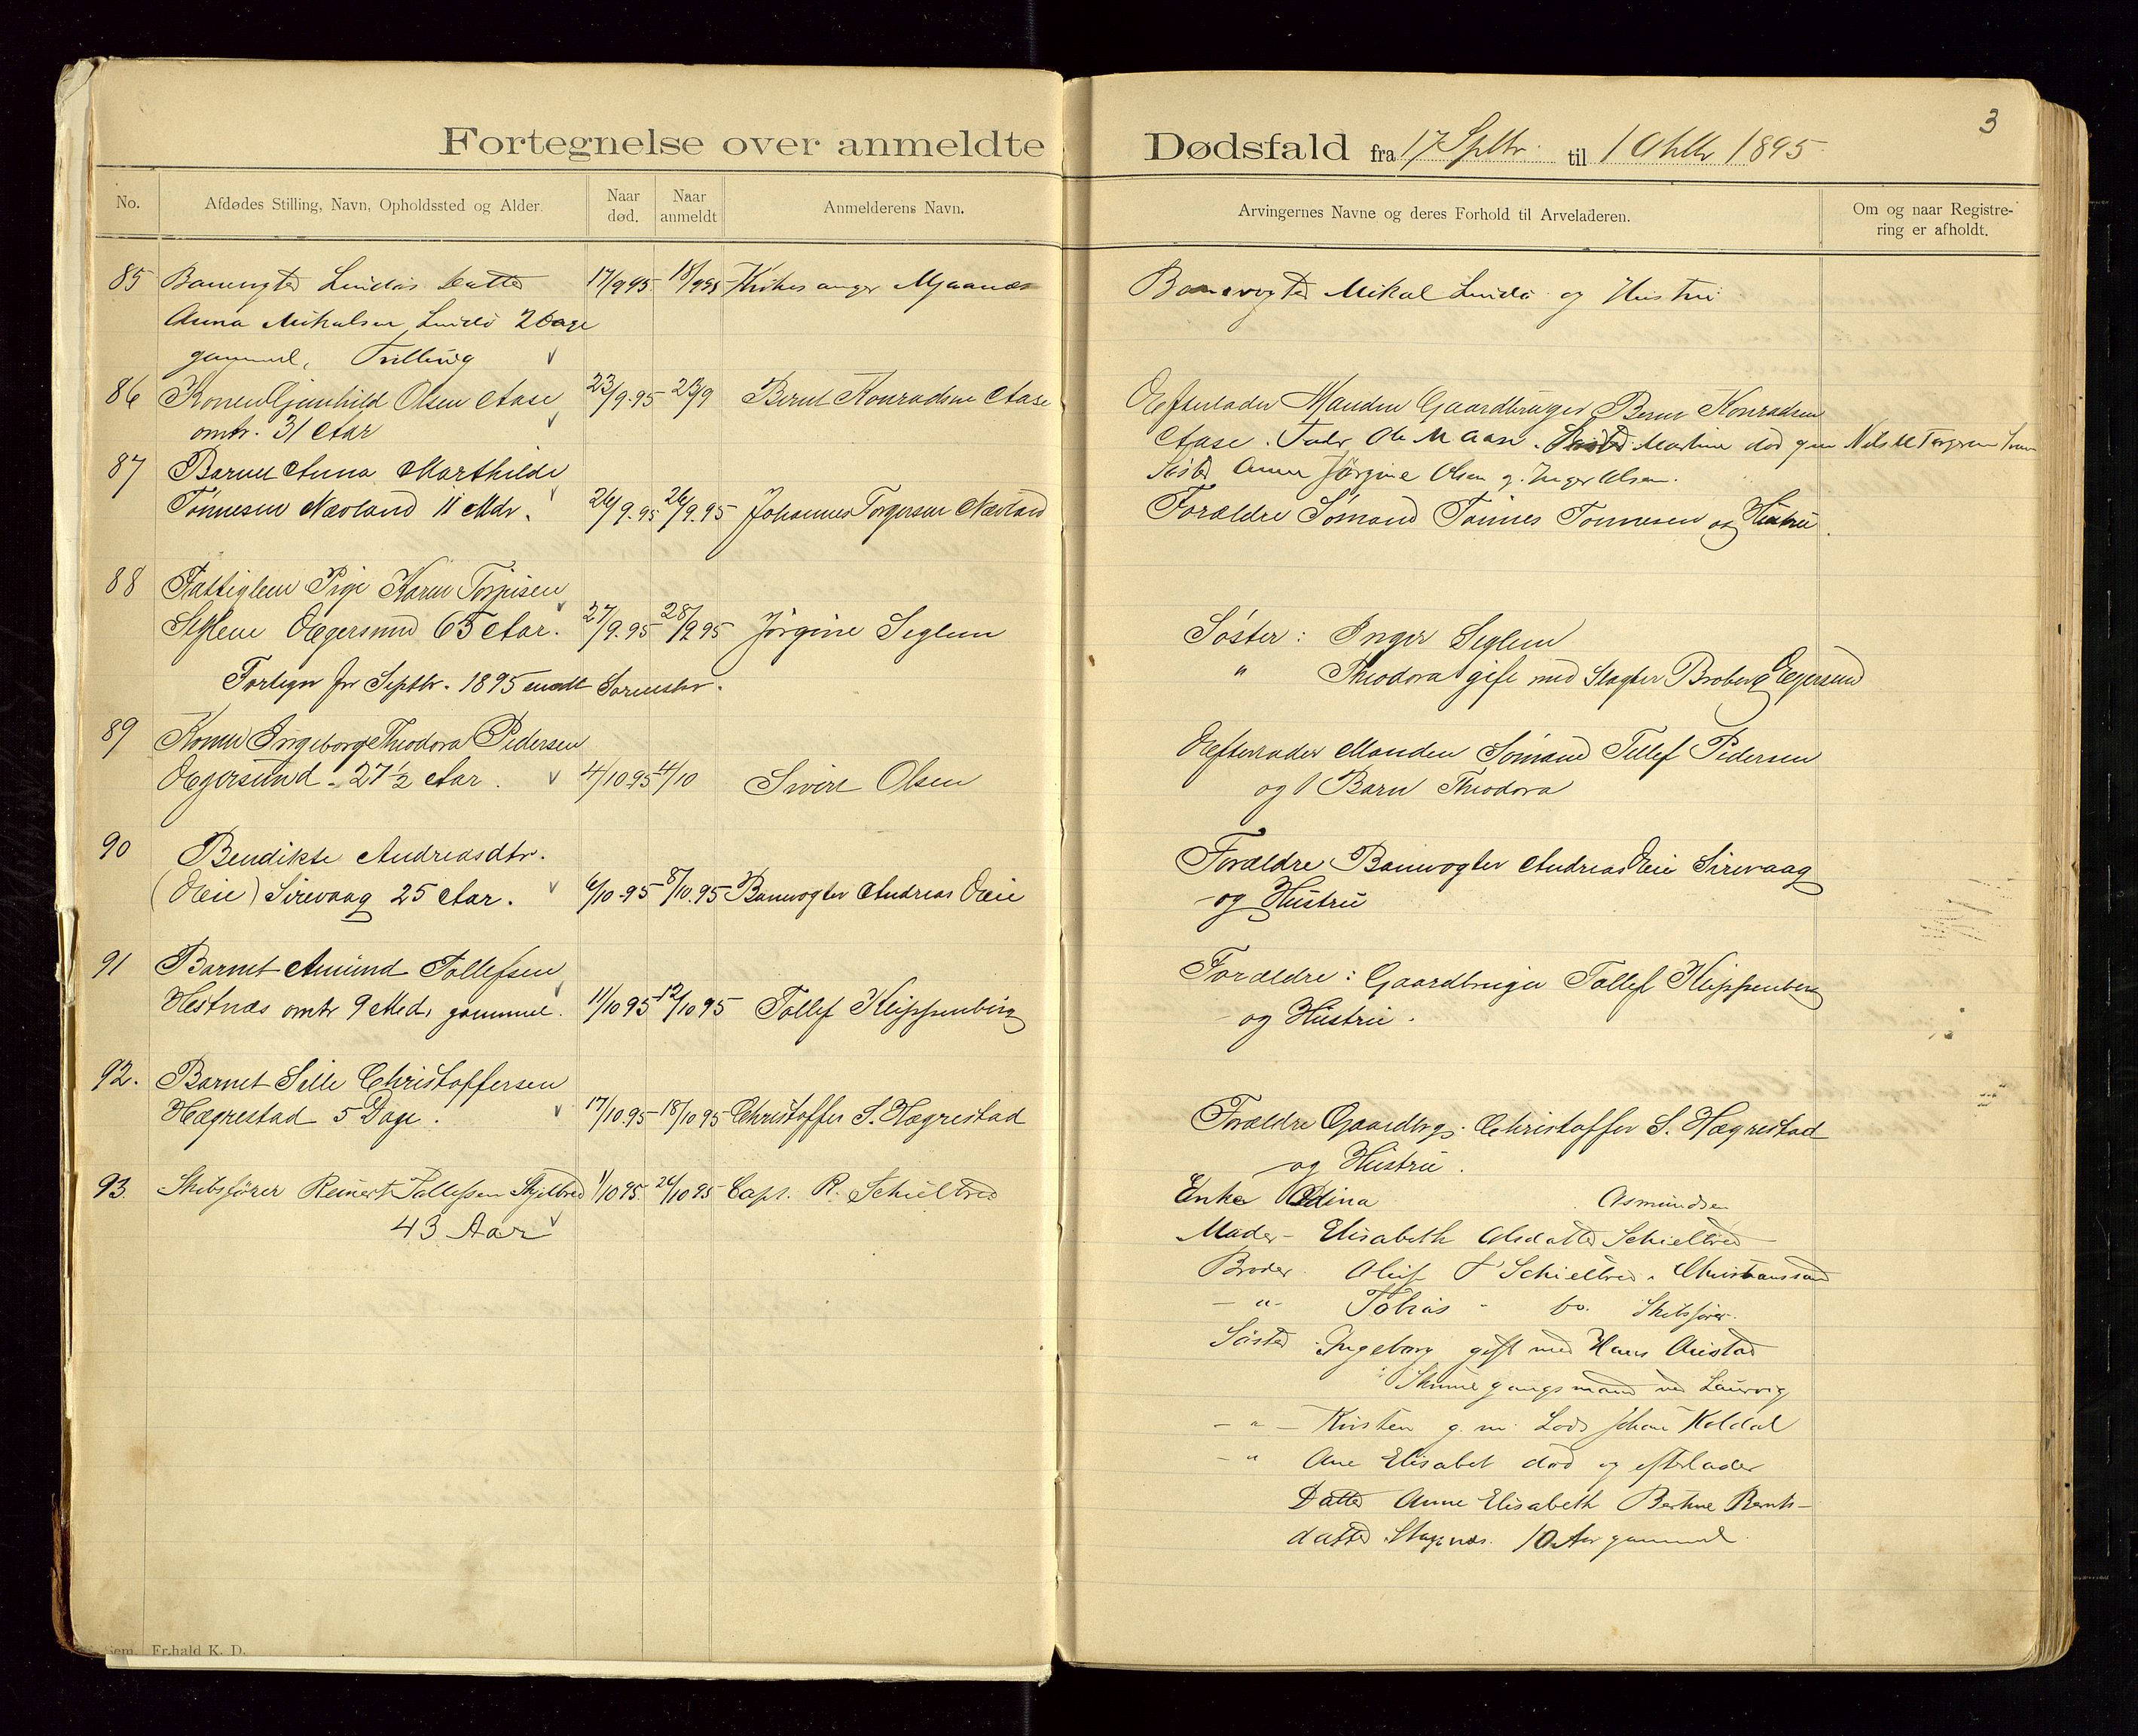 3
Fortegnelse over anmeldte Dødsfald fra 17 Septbr. til 1 1895
No. Afdødes Stilling, Navn, Opholdssted og Alder. Naar død. Naar anmeldt Anmelderens Navn. Arvingernes Navne og deres Forhold til Arveladeren. Om og naar Registrering er afholdt.
85 Datter 17/9 95 18/9 95 Banevogter Mikal og Hustru
Anna Mikalsen 2 Dage
gammel, Tvilling
86 Konen Gunhild Olsen Aase 23/9.95 23/9 Bernt Konradsen Aase Efterlader Manden Gaardbruger Bernt Konradsen
omtr. 31 Aar Aase. Fader Ole M Aase. Martine død gm Nils
Søster Anne Jørgine Olsen og Inger Olsen.
87 Barnet Anna Marthilde
Tønnesen Nævland 11 Mdr. 26/9.95 26/9.95 Johannes Torgersen Nævland Forældre Sømand Tønnes Tønnesen og Hustru.
88 Fattiglem Pige Karen
Seglem Egersund 65 Aar. 27/9.95 28/9 95 Jørgine Seglem Søster: Inger Seglem
Fortegn for Septbr. 1895 sendt Sorenskr. " Theodora gift med Slagter Broberg Egersund
89 Konen Ingeborg Theodora Pedersen Efterlader Manden Sømand Tellef Pedersen
Egersund 27 1/2 Aar. 4/10.95 4/10 Sivert Olsen og 1 Barn Theodora
90 Bendikte Andreasdtr. Forældre Banevogter Andreas Eeie Sirevaag
(Eeie) Sirevaag 25 Aar. 6/10.95 8/10.95 Banevogter Andreas Eeie og Hustru
91 Barnet Amund Tollefsen Forældre: Gaardbruger Tollef Klippenberg
Hestnæs omtr 9 Md. gammel. 11/10 95 12/10 95 Tollef Klippenberg og Hustru.
92. Barnet Sille Christoffersen
Hægrestad 5 Dage. 17/10.95 18/10 95 Christoffer S. Hægrestad Forældre Gaardbrg. Christoffer S. Hægrestad
og Hustru.
93. Skibsfører Reinert Tollefsen Skjelbred 1/10 95. 26/10 95 Capt. R. Schielbred Enke Edina Asmundsen
43 Aar Moder - Elisabeth Olsdatter Schielbred
Broder Oluf T Schielbred. Christianssand
- " - Tobias - Do. Skibsfører.
Søster Ingeborg gift med Hans
ved Laurvig
- " - Kirsten g. m. Lods Johan Koldal
- " Ane Elisabet død og efterlader
Datter Anne Elisabeth Bertine Bernts-
datter 10 Aar gammel
Fr.hald K. D.